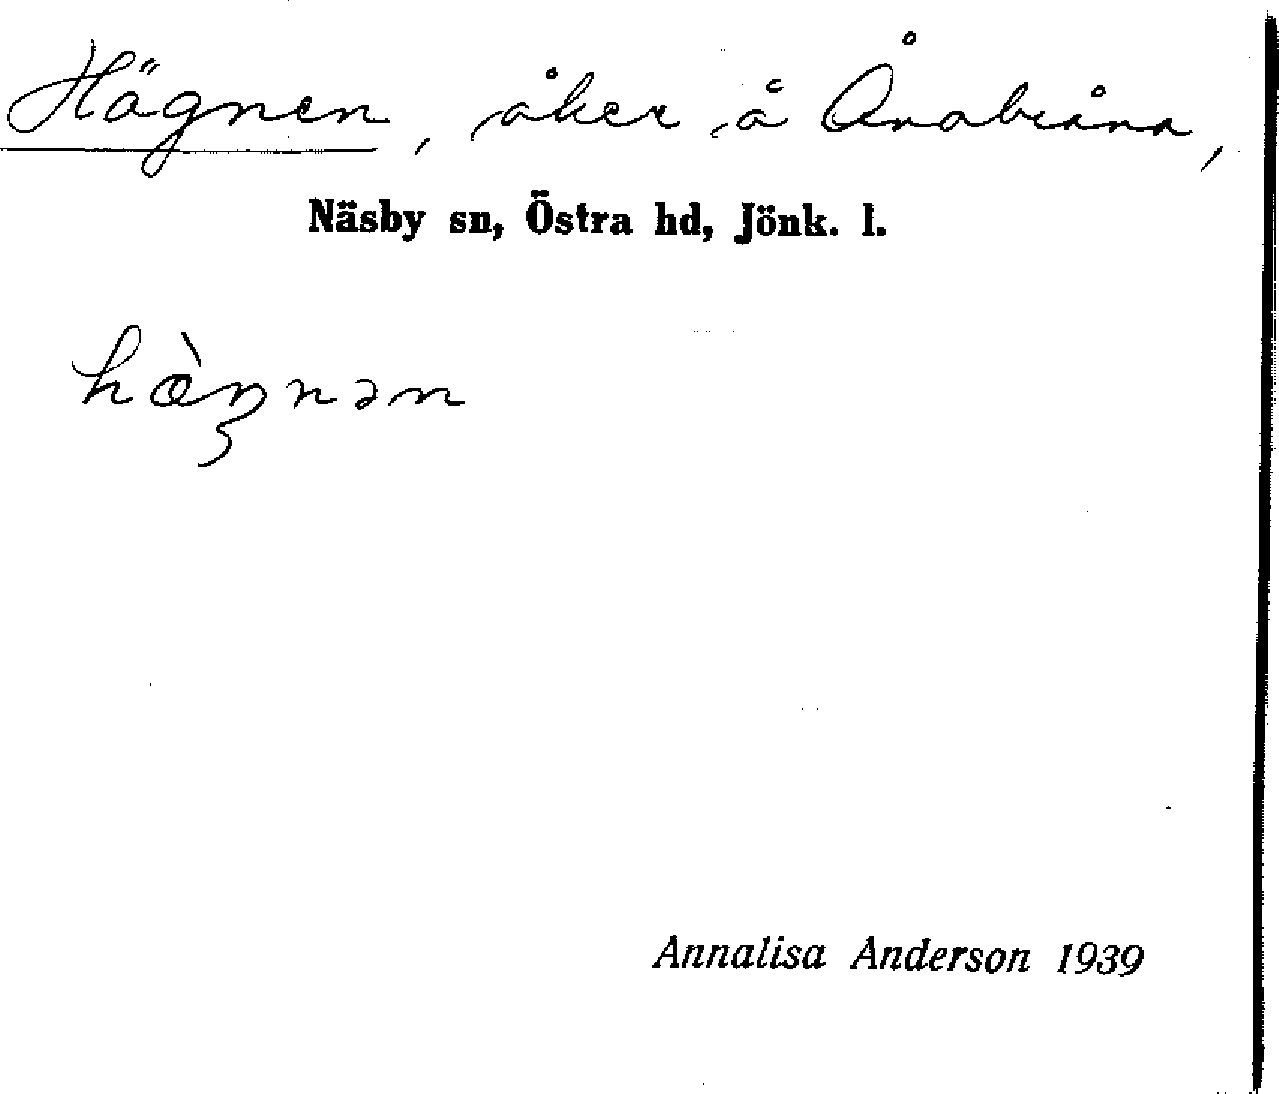 Hägnen, åker å Ånabråna,
Näsby sn, Östra hd, Jönk. l.
hæ̀ŋnən
Annalisa Anderson 1939